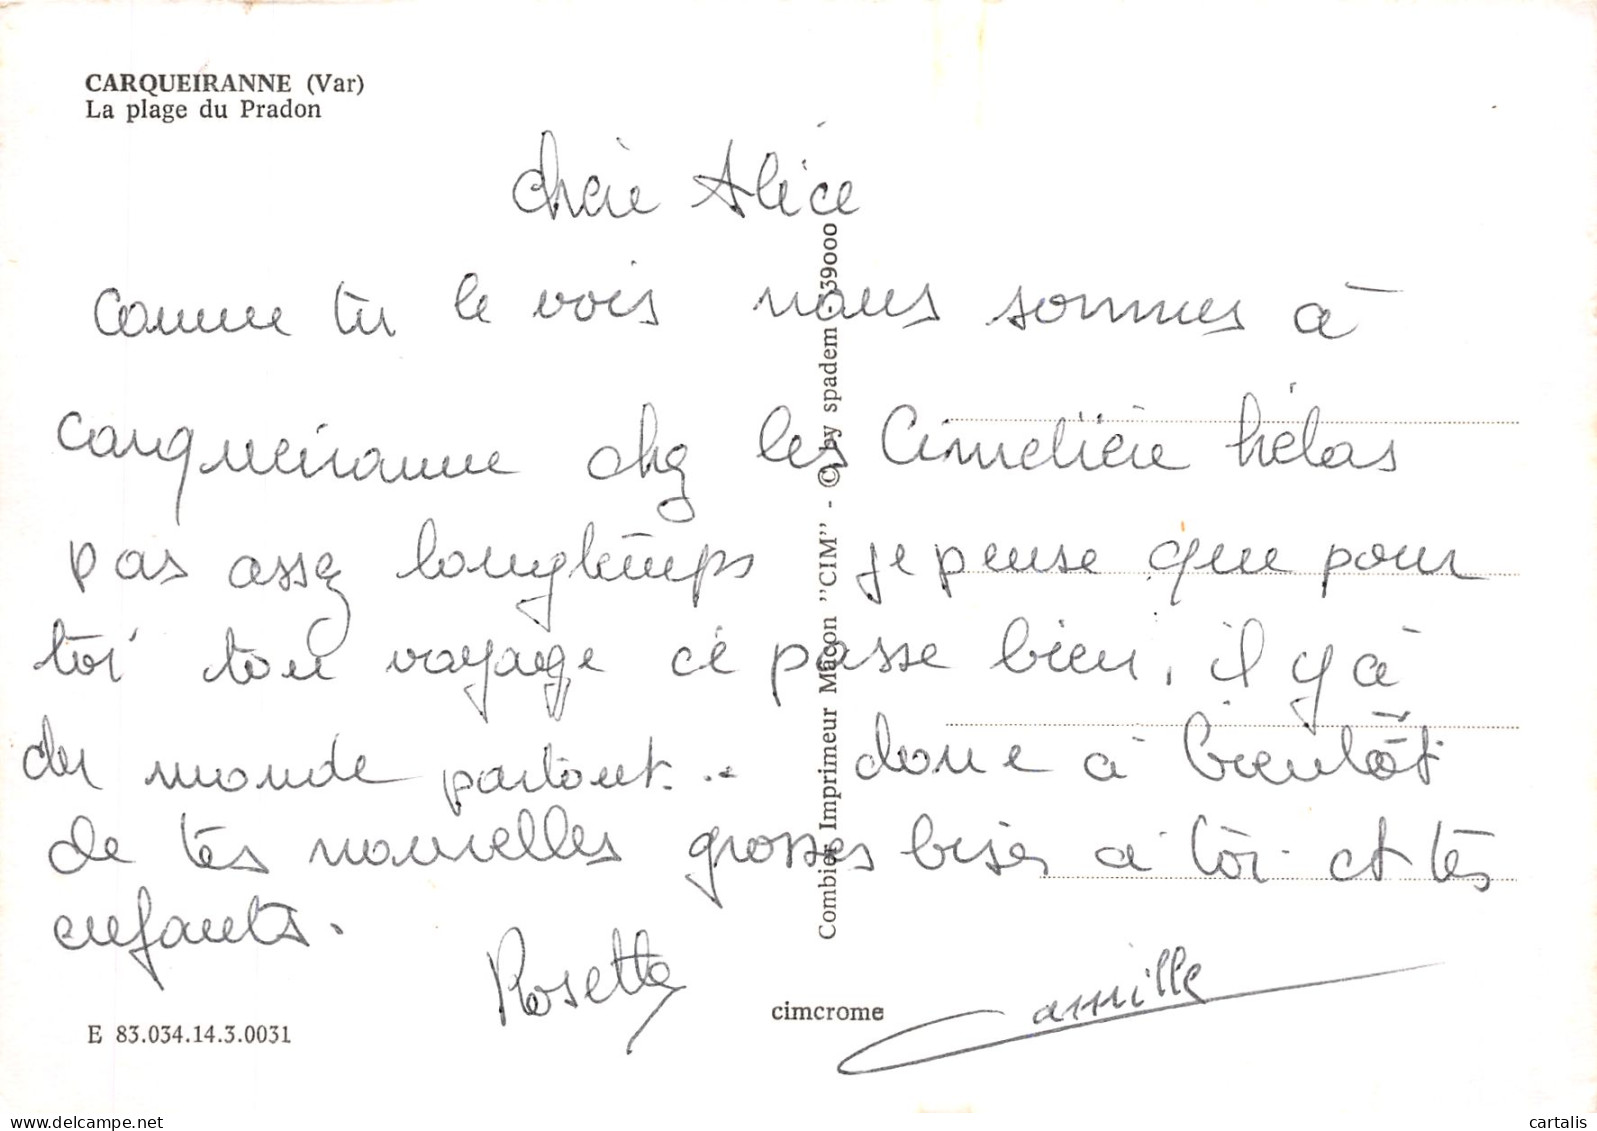 CARQUEIRANNE (Var)
La plage du Pradon
chère Alice
comme tu le vois nous sommes à
carqueiranne chez les Cimetière hélas
pas assez longtemps je pense que pour
toi ton voyage cé passe bien, il y à
du monde partout... donc à bientôt
de tes nouvelles grosses bises à toi et tes
enfants.
Rosette
Camille
Combier Imprimeur Macon "CIM" - © by spadem - 39000
cimcrome
E 83.034.14.3.0031
cartalis
delcampe.net